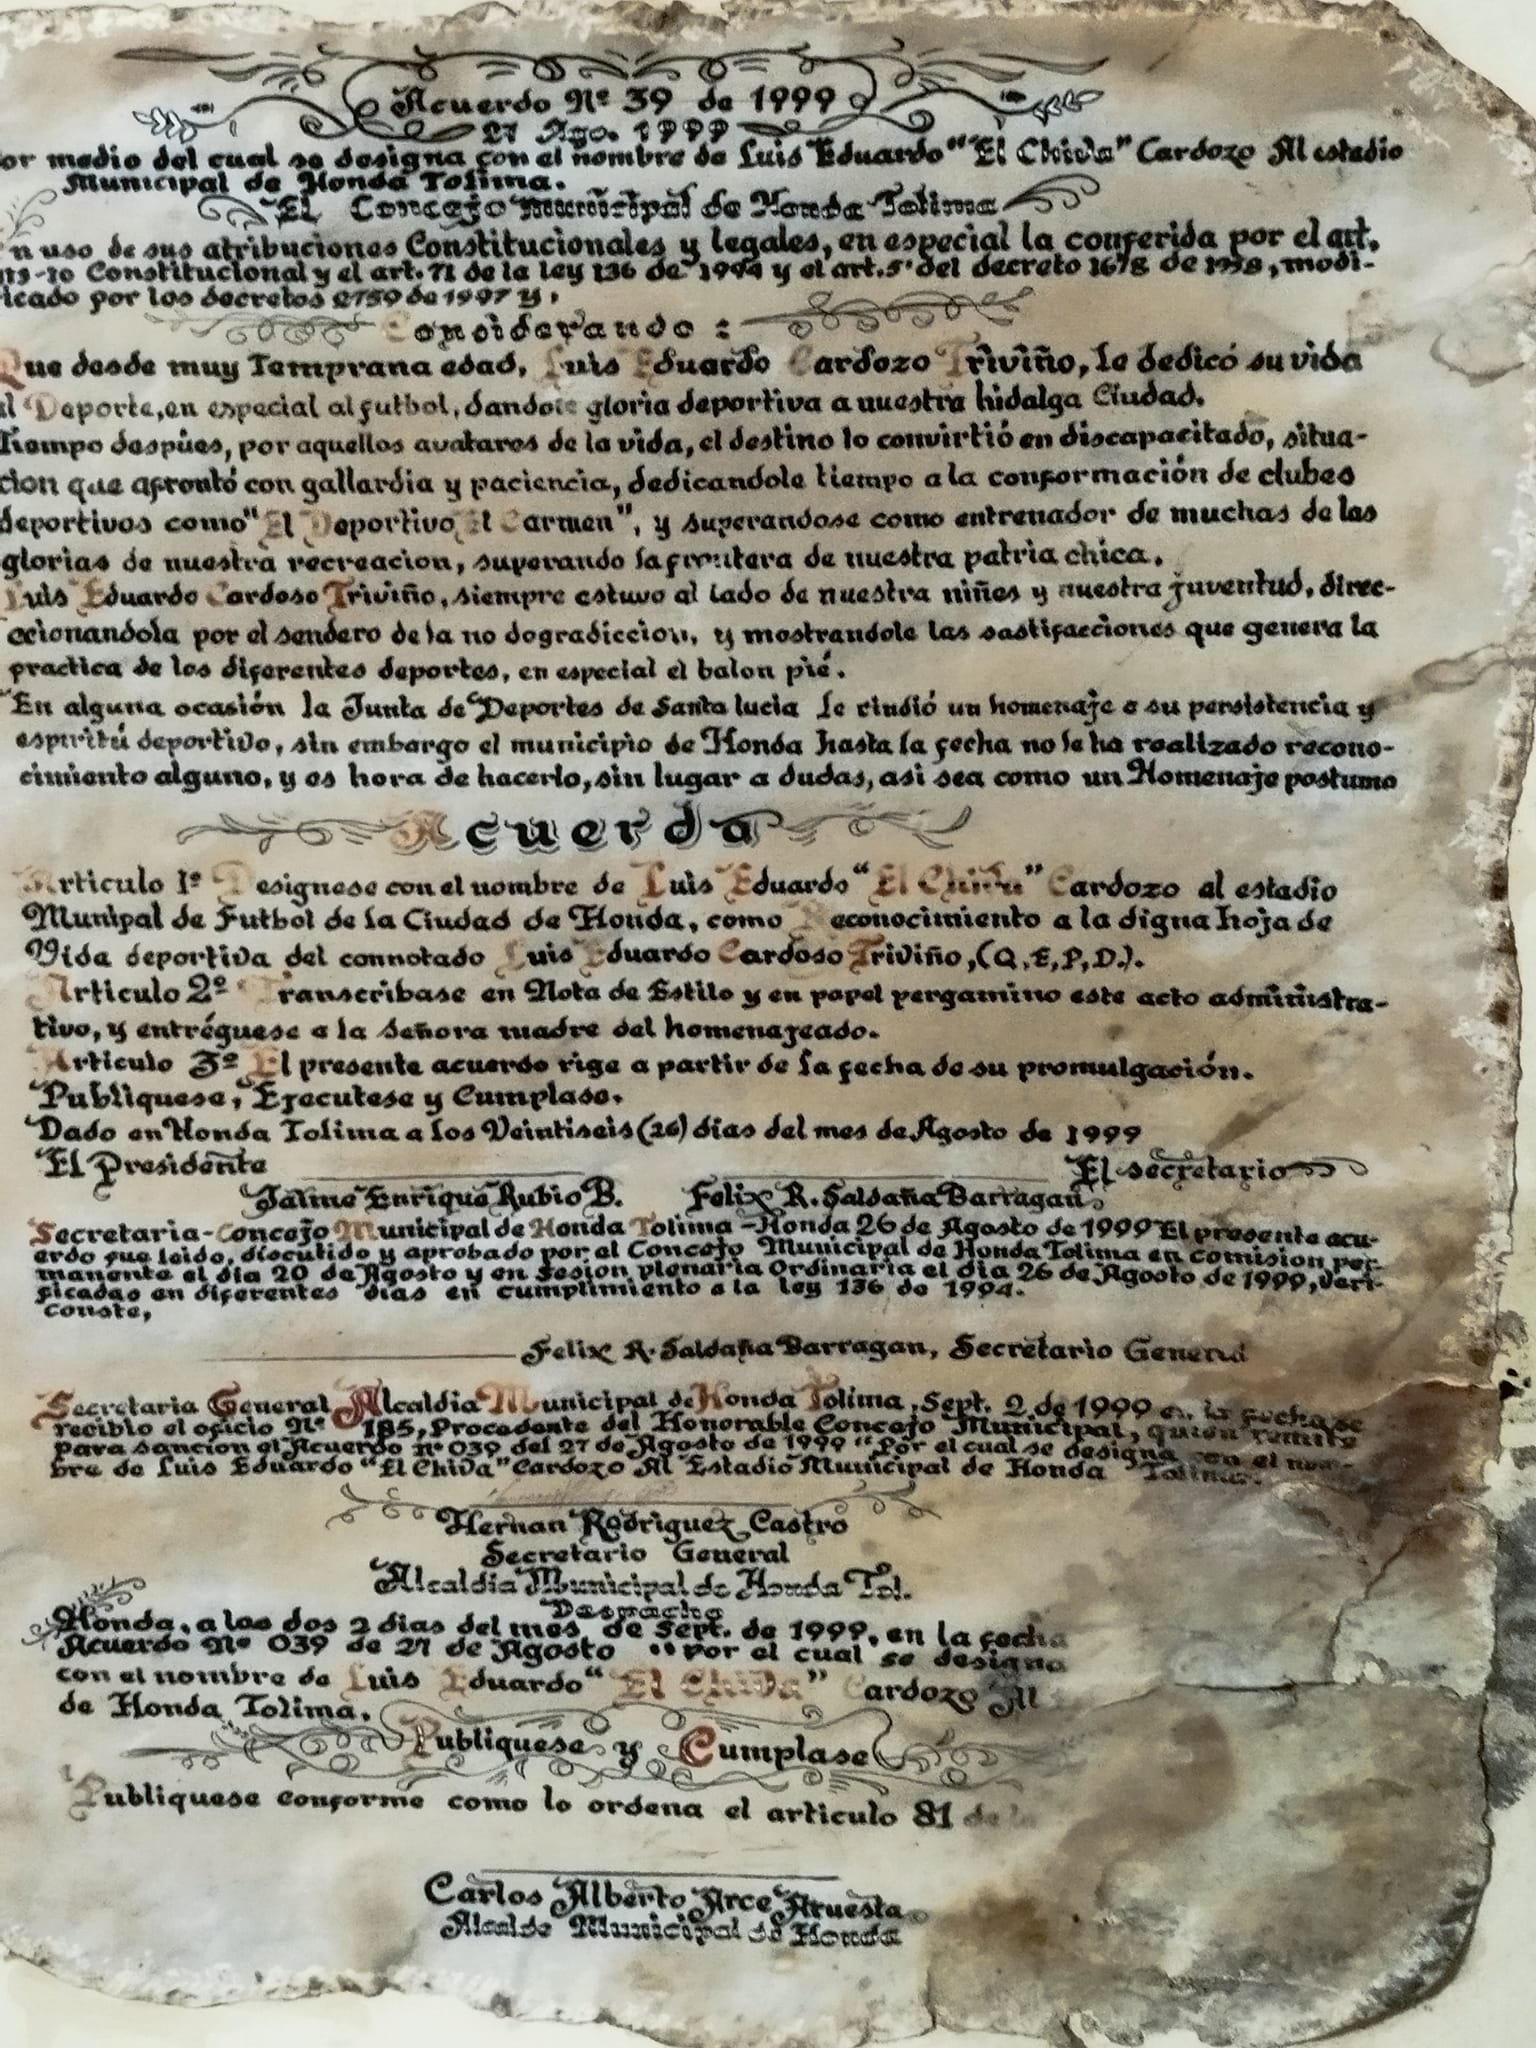 Acuerdo Nº 39 de 1999
27 Ago. 1999
or medio del cual se designa con el nombre de Luis Eduardo "El Chiva" Cardozo Al estadio
Municipal de Honda Tolima.
El Concejo Municipal de Honda Tolima
n uso de sus atribuciones Constitucionales y legales, en especial la conferida por el art.
Constitucional y el art. 71 de la ley 136 de 1994 y el art. 5º del decreto 1678 de 1958, modi-
icado por los decretos 2759 de 1997 y,
Considerando:
Que desde muy Temprana edad, Luis Eduardo Cardozo Triviño, le dedicó su vida
al Deporte, en especial al futbol, dandole gloria deportiva a nuestra hidalga Ciudad.
Tiempo despúes, por aquellos avatares de la vida, el destino lo convirtió en discapacitado, situa-
cion que afrontó con gallardia y paciencia, dedicandole tiempo a la conformación de clubes
deportivos como "El Deportivo El Carmen", y superandose como entrenador de muchas de las
glorias de nuestra recreacion, superando la frontera de nuestra patria chica.
Luis Eduardo Cardoso Triviño, siempre estuvo al lado de nuestra niñes y nuestra juventud, direc-
ccionandola por el sendero de la no dogradiccion, y mostrandole las sastifacciones que genera la
practica de los diferentes deportes, en especial el balon pié.
En alguna ocasión la Junta de Deportes de Santa lucia le rindió un homenaje a su persistencia y
espiritú deportivo, sin embargo el municipio de Honda hasta la fecha no le ha realizado recono-
cimiento alguno, y es hora de hacerlo, sin lugar a dudas, asi sea como un Homenaje postumo
Acuerda
Articulo 1º Designese con el nombre de Luis Eduardo "El Chiva" Cardozo al estadio
Munipal de Futbol de la Ciudad de Honda, como Reconocimiento a la digna hoja de
Vida deportiva del connotado Luis Eduardo Cardoso Triviño, (Q,E,P,D.).
Articulo 2º Transcribase en Nota de Estilo y en papel pergamino este acto administra-
tivo, y entréguese a la señora madre del homenajeado.
Articulo 3º El presente acuerdo rige a partir de la fecha de su promulgación.
Publiquese, Ejecutese y Cumplase.
Dado en Honda Tolima a los Veintiseis (26) dias del mes de Agosto de 1999
El Presidente El secretario
Jaime Enrique Rubio B. Felix R. Saldaña Barragan
Secretaria-Concejo Municipal de Honda Tolima - Honda 26 de Agosto de 1999 El presente acu-
erdo fue leido, discutido y aprobado por el Concejo Municipal de Honda Tolima en comision per-
manente el dia 20 de Agosto y en sesion plenaria Ordinaria el dia 26 de Agosto de 1999, Veri-
ficadas en diferentes dias en cumplimiento a la ley 136 de 1994.
Conste,
Felix R. Saldaña Barragan, Secretario General
Secretaria General Alcaldia Municipal de Honda Tolima, Sept. 2 de 1999 en la fecha se
recibio el oficio Nº 185, Procedente del Honorable Concejo Municipal, quien remite
para sancion el Acuerdo nº 039 del 27 de Agosto de 1999 "Por el cual se designa con el nom-
bre de Luis Eduardo "El Chiva" Cardozo Al Estadio Municipal de Honda Tolima.
Hernan Rodriguez Castro
Secretario General
Alcaldia Municipal de Honda Tol.
Despacho
Honda, a los dos 2 dias del mes de Sept. de 1999, en la fecha
Acuerdo Nº 039 de 27 de Agosto "Por el cual se designa
con el nombre de Luis Eduardo "El Chiva" Cardozo Al
de Honda Tolima.
Publiquese y Cumplase
Publiquese conforme como lo ordena el articulo 81 de la
Carlos Alberto Arce Aruesta
Alcalde Municipal de Honda